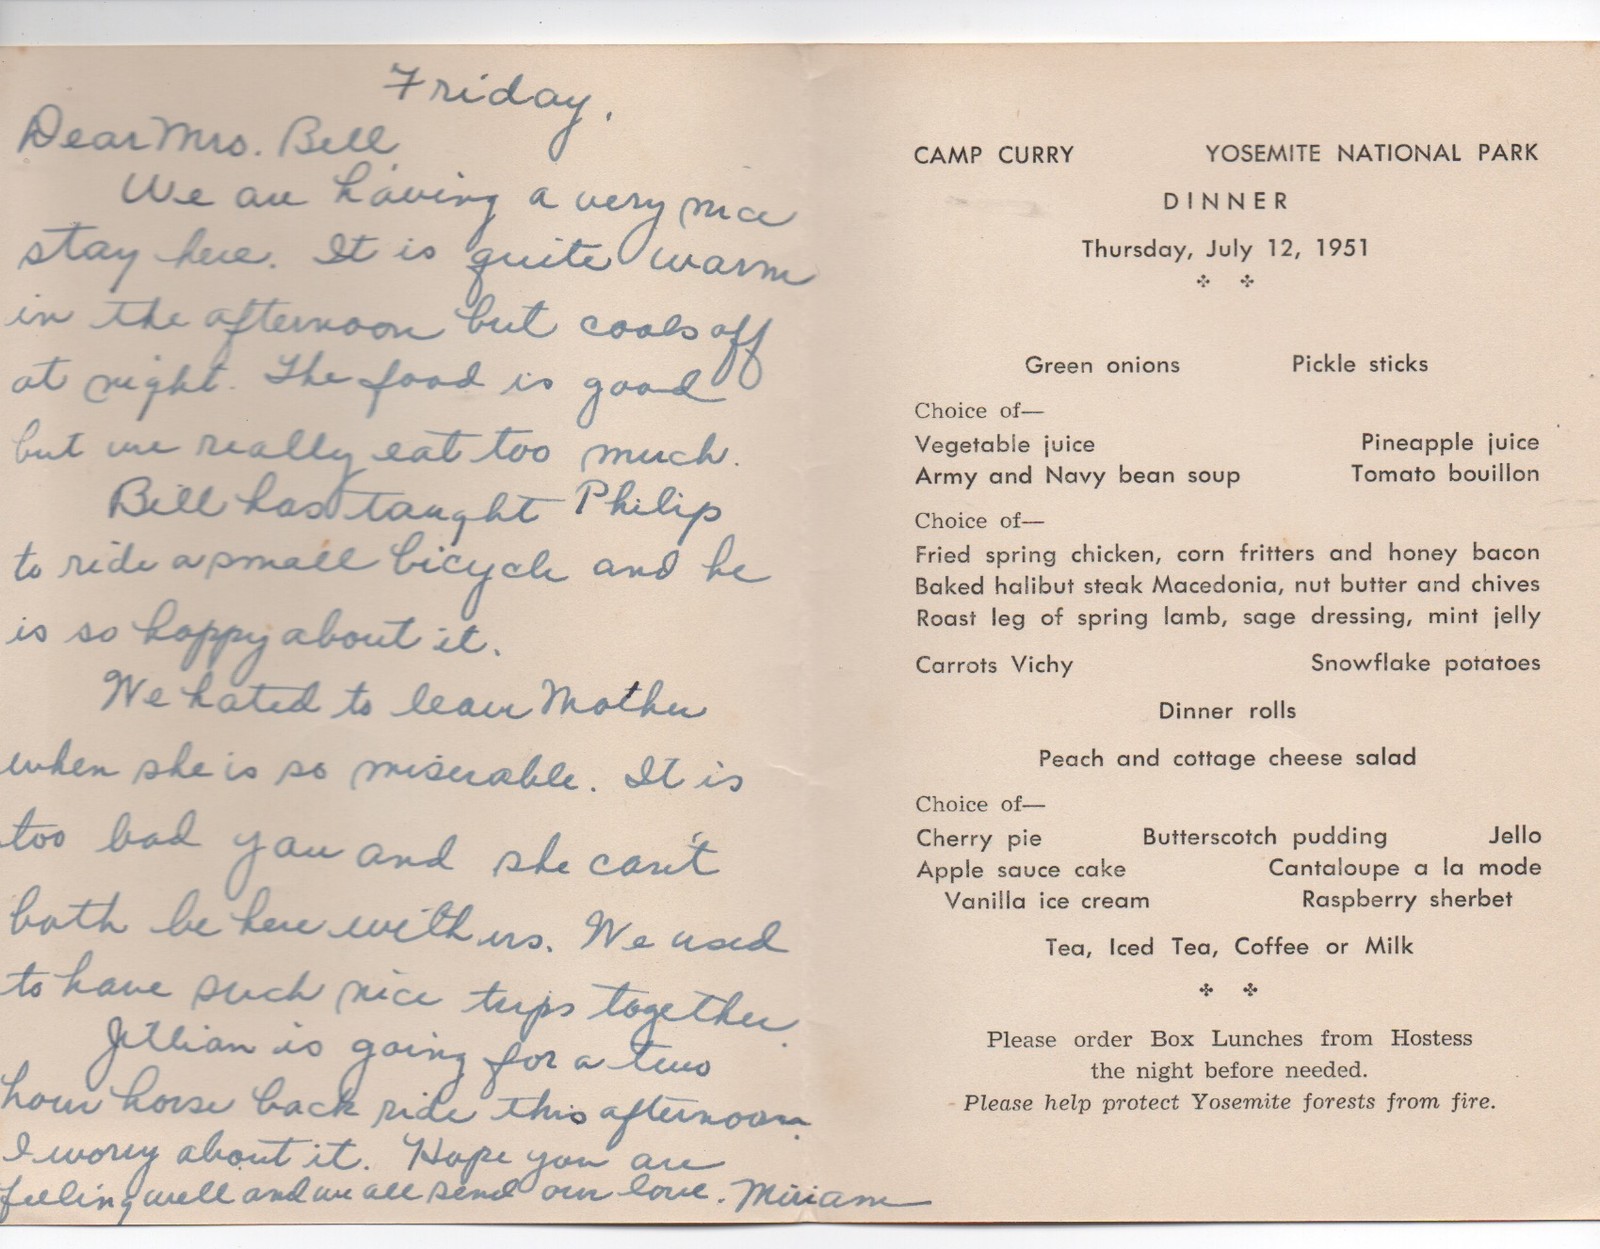 Friday.
Dear Mrs. Bell,
We are having a very nice
stay here. It is quite warm
in the afternoon but cools off
at night. The food is good
but we really eat too much.
Bill has taught Philip
to ride a small bicycle and he
is so happy about it.
We hated to leave Mother
when she is so miserable. It is
too bad you and she can't
both be here with us. We used
to have such nice trips together.
Jillian is going for a two
hour horse back ride this afternoon.
I worry about it. Hope you are
feeling well and we all send our love. Miriam
CAMP CURRY YOSEMITE NATIONAL PARK
DINNER
Thursday, July 12, 1951
Green onions Pickle sticks
Choice of—
Vegetable juice Pineapple juice
Army and Navy bean soup Tomato bouillon
Choice of—
Fried spring chicken, corn fritters and honey bacon
Baked halibut steak Macedonia, nut butter and chives
Roast leg of spring lamb, sage dressing, mint jelly
Carrots Vichy Snowflake potatoes
Dinner rolls
Peach and cottage cheese salad
Choice of—
Cherry pie Butterscotch pudding Jello
Apple sauce cake Cantaloupe a la mode
Vanilla ice cream Raspberry sherbet
Tea, Iced Tea, Coffee or Milk
Please order Box Lunches from Hostess
the night before needed.
Please help protect Yosemite forests from fire.